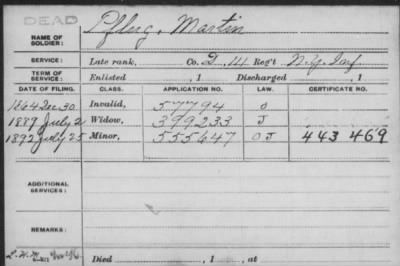 DEAD
NAME OF SOLDIER: Pflug, Martin
SERVICE: Late rank, Co. D, 14 Reg't N.Y. Inf
TERM OF SERVICE: Enlisted , 1 Discharged , 1
DATE OF FILING. CLASS. APPLICATION NO. LAW. CERTIFICATE NO.
1864 Dec. 30 Invalid, 57794 O
1889 July 2 Widow, 399233 J
1892 July 25 Minor, 555647 O J 443 469
ADDITIONAL SERVICES:
REMARKS:
Died , 1 , at